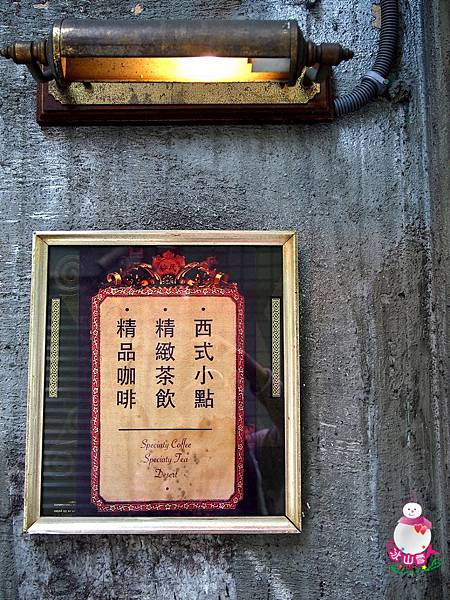 西式小點
精緻茶飲
精品咖啡
Specialy Coffee
Specialy Tea
Desert
冰山雪